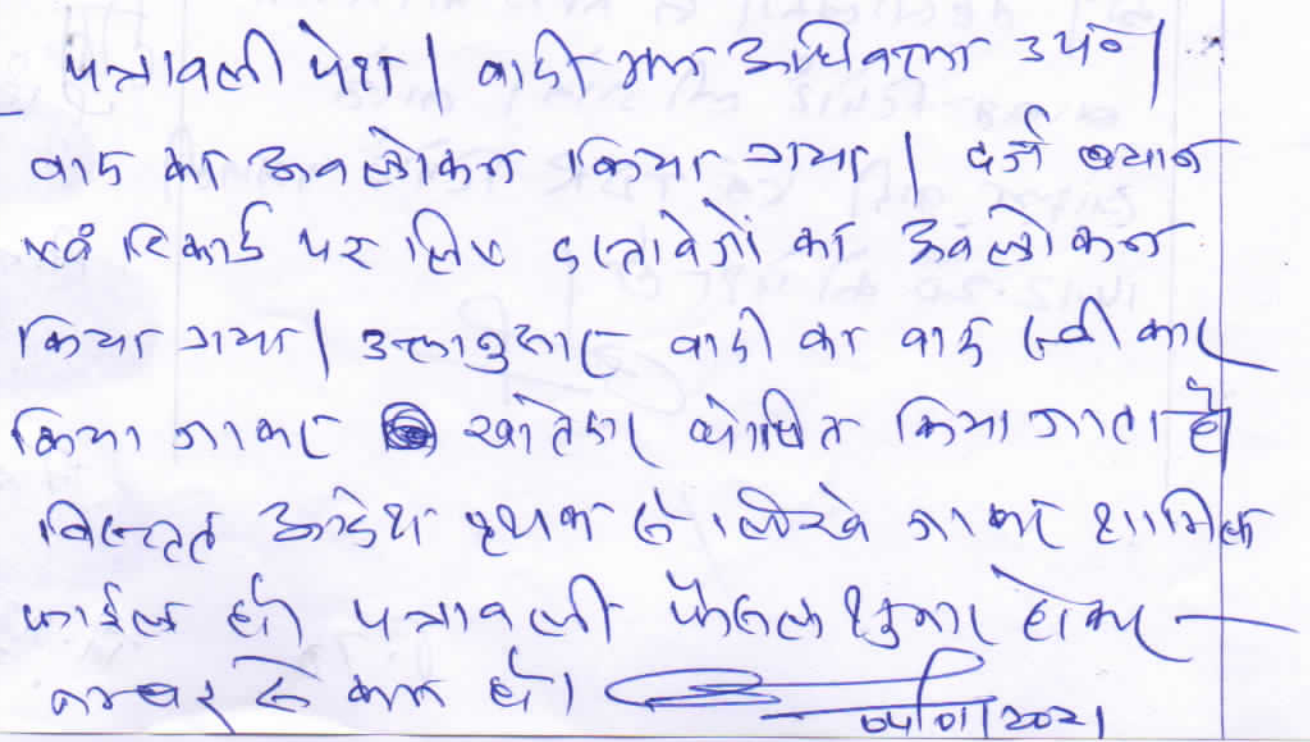 पत्रावली पेश। वादी मय अधिवक्ता उप०।
वाद का अवलोकन किया गया। दर्ज बयान
एवं रिकार्ड पर लिए दस्तावेजों का अवलोकन
किया गया। उक्तानुसार वादी का वाद स्वीकार
किया जाकर खातेदार घोषित किया जाता है
विस्तृत आदेश पृथक से लिखे जाकर शामिल
फाईल हो। पत्रावली फैसल शुमार होकर
नम्बर से कम हो।
04/01/2021